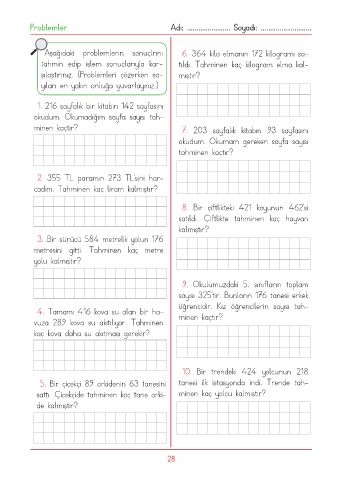 Problemler
Adı: ...................... Soyadı: ..........................
Aşağıdaki problemlerin sonuçlarını
tahmin edip işlem sonuçlarıyla kar-
şılaştırınız. (Problemleri çözerken sa-
yıları en yakın onluğa yuvarlayınız.)
1. 216 sayfalık bir kitabın 142 sayfasını
okudum. Okumadığım sayfa sayısı tah-
minen kaçtır?
2. 355 TL paramın 273 TL'sini har-
cadım. Tahminen kaç liram kalmıştır?
3. Bir sürücü 584 metrelik yolun 176
metresini gitti. Tahminen kaç metre
yolu kalmıştır?
4. Tamamı 416 kova su alan bir ha-
vuza 289 kova su akıtılıyor. Tahminen
kaç kova daha su akıtması gerekir?
5. Bir çiçekçi 89 orkidenin 63 tanesini
sattı. Çiçekçide tahminen kaç tane orki-
de kalmıştır?
6. 364 kilo elmanın 172 kilogramı sa-
tıldı. Tahminen kaç kilogram elma kal-
mıştır?
7. 203 sayfalık kitabın 93 sayfasını
okudum. Okumam gereken sayfa sayısı
tahminen kaçtır?
8. Bir çiftlikteki 421 koyunun 462'si
satıldı. Çiftlikte tahminen kaç hayvan
kalmıştır?
9. Okulumuzdaki 5. sınıfların toplam
sayısı 325'tir. Bunların 176 tanesi erkek
öğrencidir. Kız öğrencilerin sayısı tah-
minen kaçtır?
10. Bir trendeki 424 yolcunun 218
tanesi ilk istasyonda indi. Trende tah-
minen kaç yolcu kalmıştır?
28